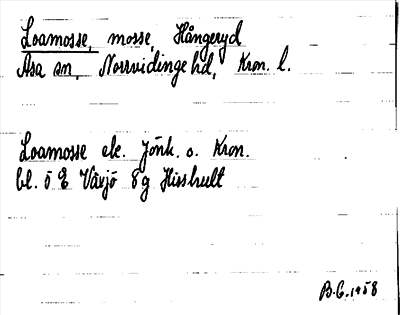 Loamosse, mosse, Hångeryd
Asa sn, Norrvidinge hd, Kron. l.
Loamosse ek. Jönk. o. Kron.
bl. 5 E Växjö 8g Hisshult
B.G. 1958